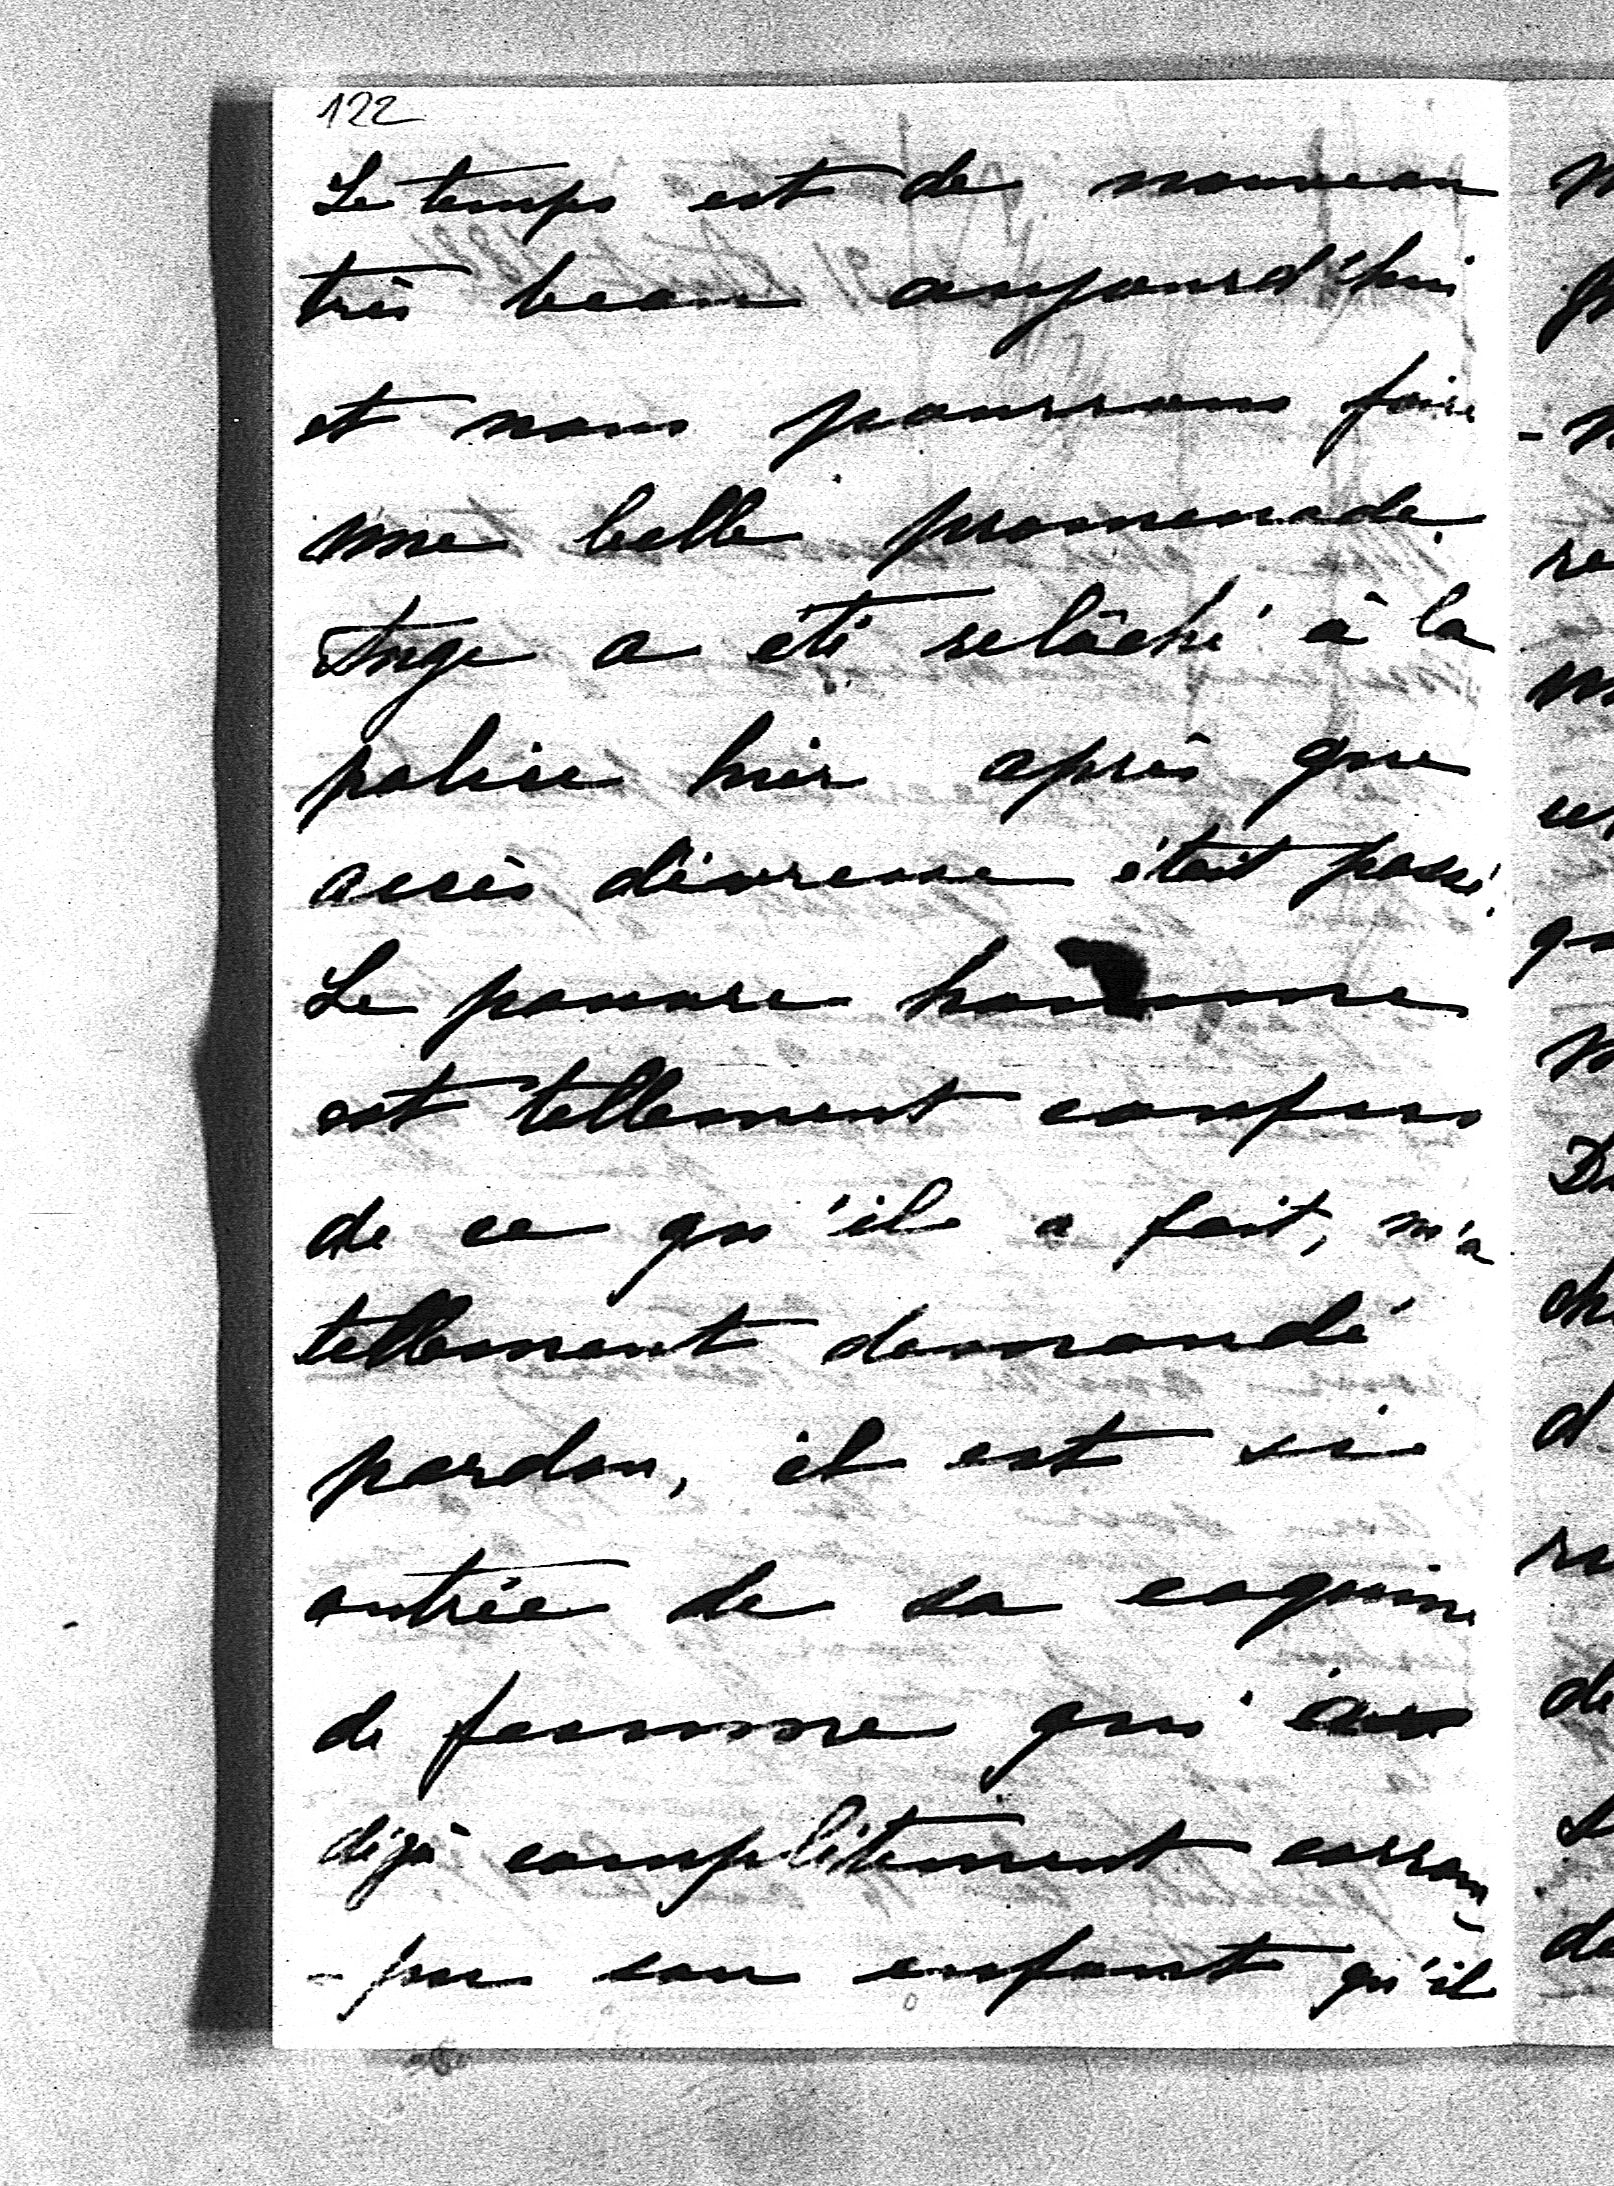 122
Le temps est de nouveau
très beau aujourd'hui
et nous pourrons faire
une belle promenade.
Ange a été relâché à la
police hier après que
accès d'ivresse était passé.
Le pauvre homme
est tellement confus
de ce qu'il a fait, m'a
tellement demandé
pardon, il est si
outrée de sa coquine
de femme qui a
déjà complètement corrom
-pu son enfant qu'il